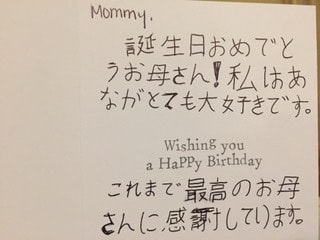 Mommy,
誕生日おめでと
うお母さん!私はあ
ながとても大好きです。
Wishing you
a HaPPy Birthday
これまで最高のお母
さんに感謝しています。